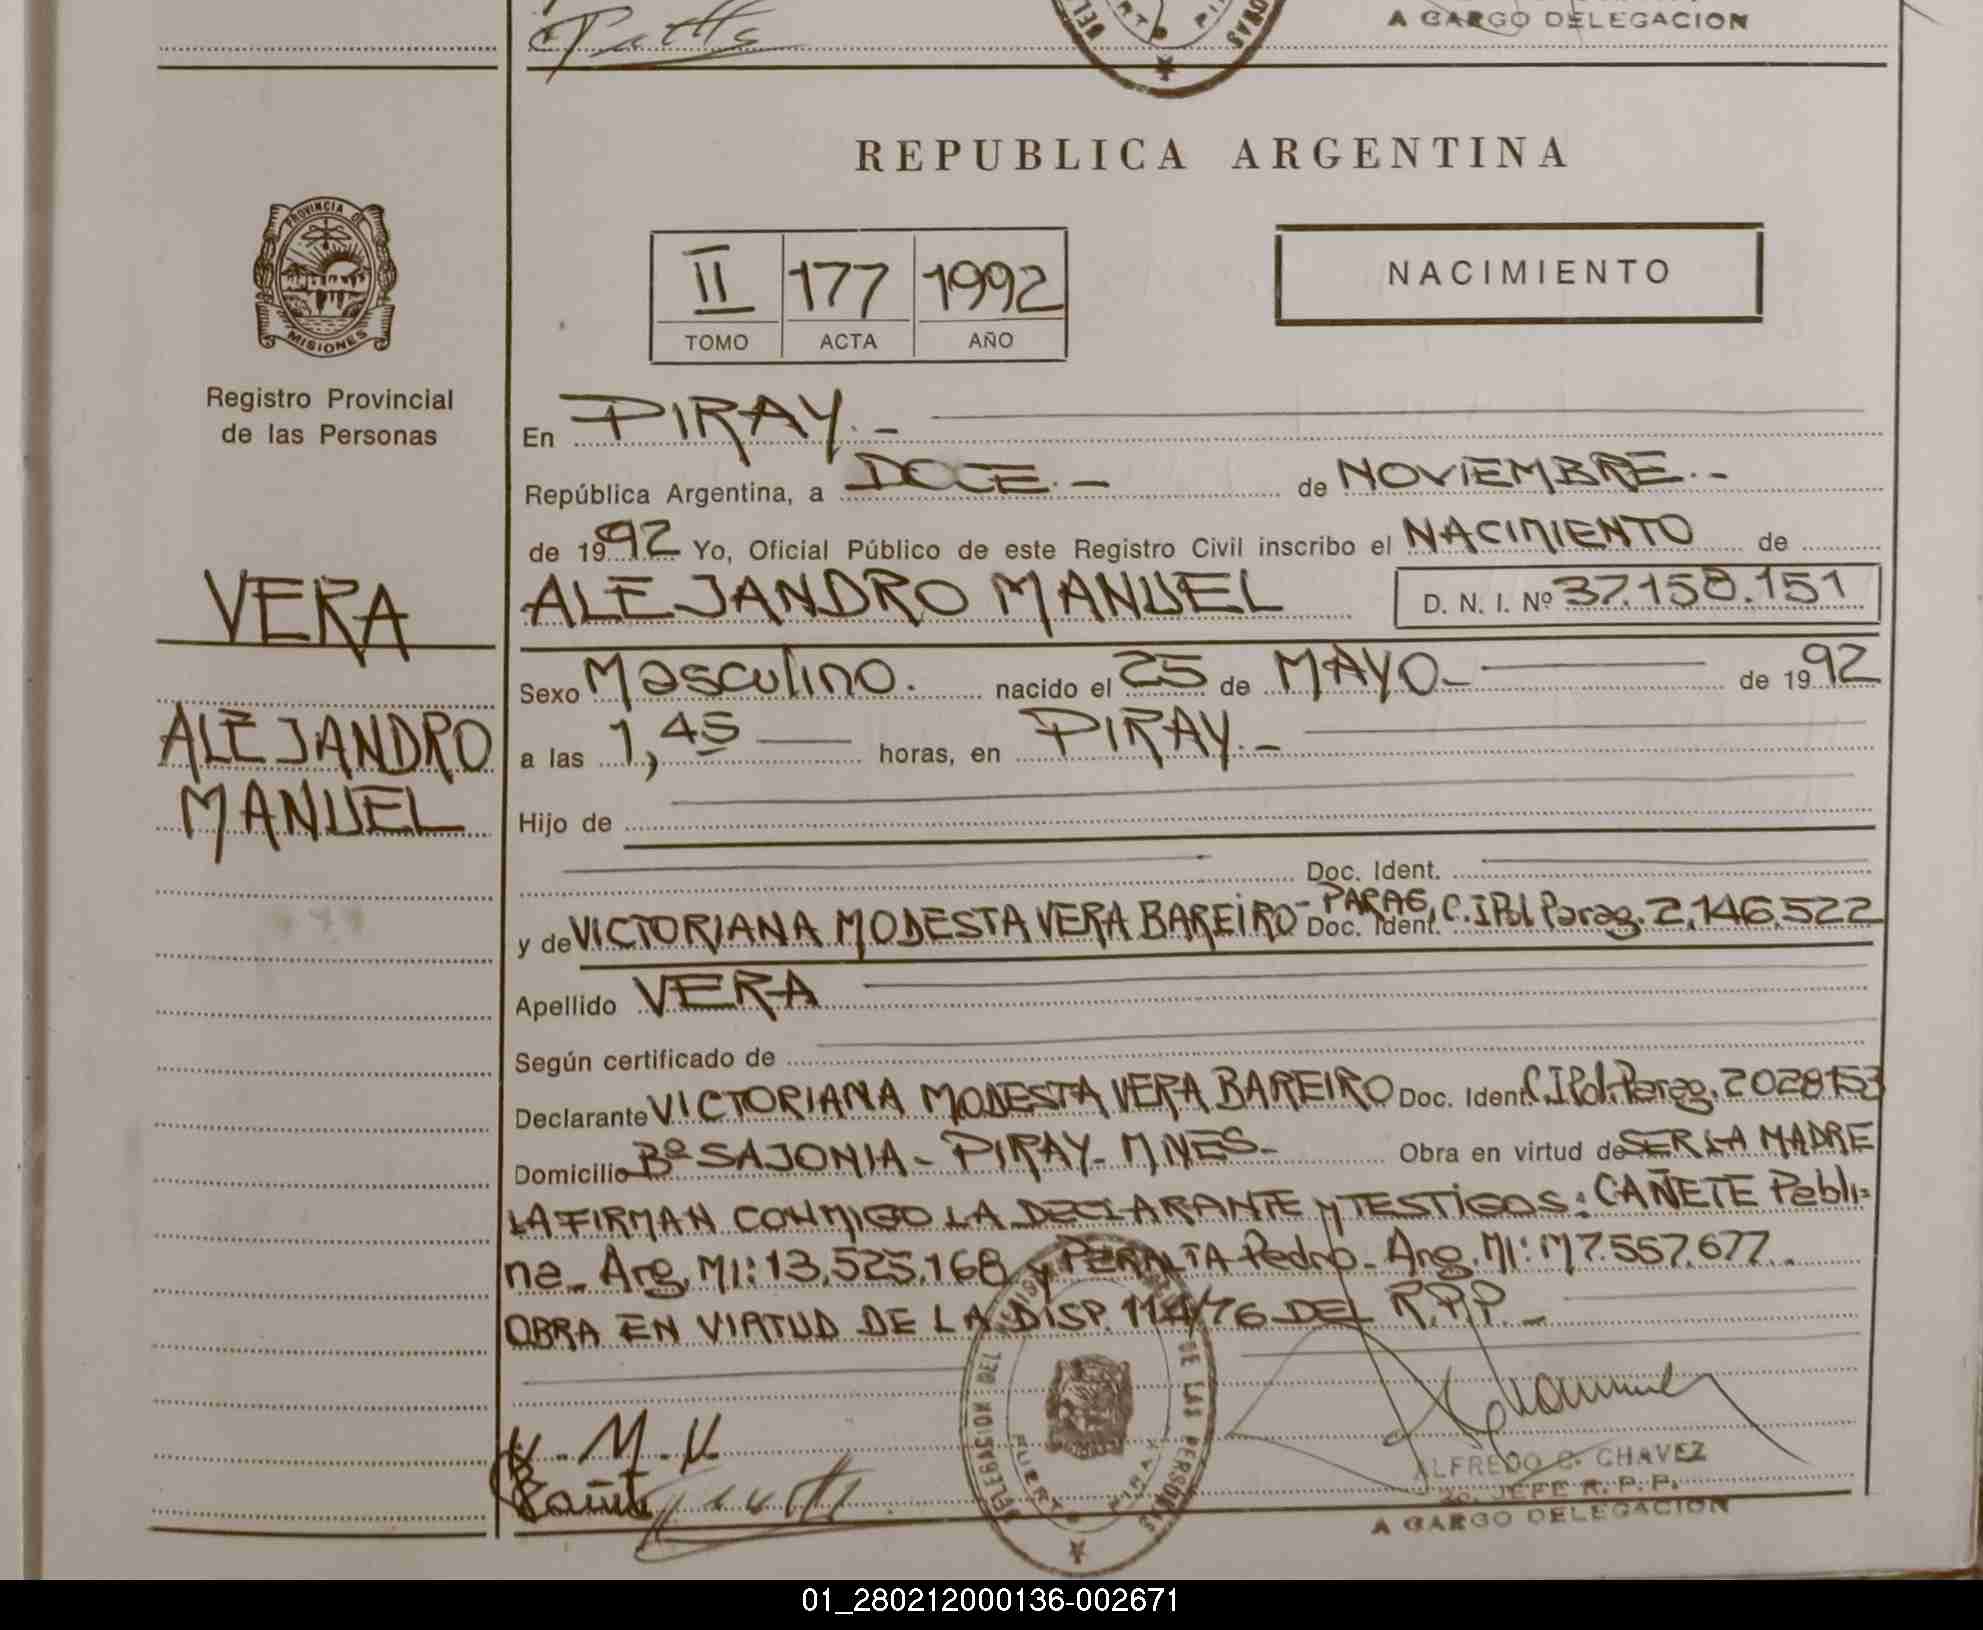 A CARGO DELEGACION
REPUBLICA ARGENTINA
PROVINCIA DE
MISIONES
II 177 1992
TOMO ACTA AÑO
NACIMIENTO
Registro Provincial
de las Personas
En PIRAY.-
República Argentina, a DOCE.- de NOVIEMBRE.-
de 1992 Yo, Oficial Público de este Registro Civil inscribo el NACIMIENTO de
VERA
ALEJANDRO MANUEL D. N. I. Nº 37.158.151
Sexo Masculino. nacido el 25 de MAYO- de 1992
ALEJANDRO
MANUEL
a las 1,45 horas, en PIRAY.-
Hijo de
Doc. Ident.
y de VICTORIANA MODESTA VERA BAREIRO- PARAG, Doc. Ident. C.IPol Parag. 2,146,522
Apellido VERA
Según certificado de
Declarante VICTORIANA MODESTA VERA BAREIRO Doc. Ident. C.IPol.Parag. 2028153
Domicilio Bº SAJONIA - PIRAY- MNES- Obra en virtud de SER LA MADRE
LA FIRMAN CONMIGO LA DECLARANTE y TESTIGOS: CAÑETE Pabli=
na_ Arg. MI: 13.525.168 y PERALTA Pedro- Arg. MI: M7.557.677..
OBRA EN VIRTUD DE LA DISP. 114/76 DEL R.P.P.-
V. M. V.
Cañete
DELEGACION DEL REGISTRO DE LAS PERSONAS
PUERTO PIRAY
ALFREDO C. CHAVEZ
2o. JEFE R. P. P.
A CARGO DELEGACION
01_280212000136-002671